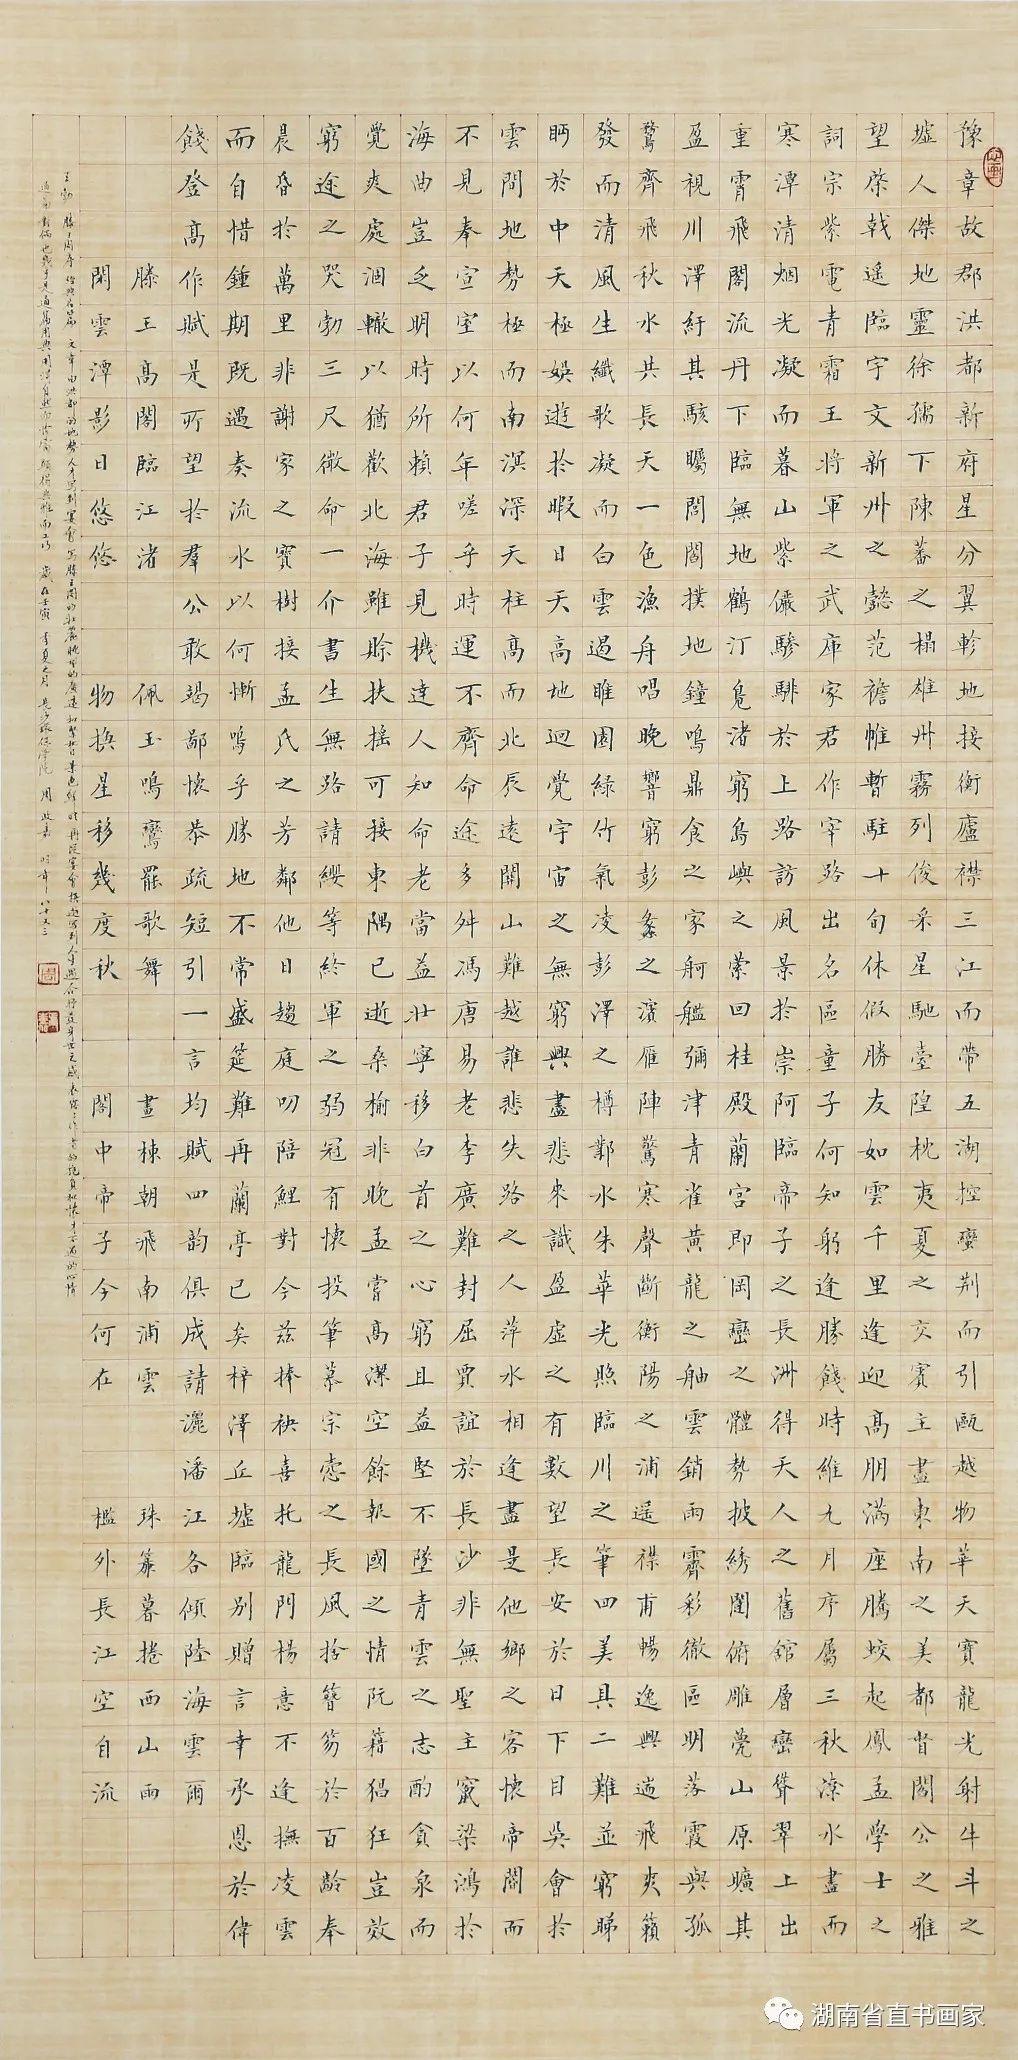 豫章故郡洪都新府星分翼軫地接衡廬襟三江而帶五湖控蠻荆而引甌越物華天寶龍光射牛斗之
墟人傑地靈徐孺下陳蕃之榻雄州霧列俊采星馳臺隍枕夷夏之交賓主盡東南之美都督閻公之雅
望棨戟遥臨宇文新州之懿范襜帷暫駐十旬休假勝友如雲千里逢迎高朋滿座騰蛟起鳳孟學士之
詞宗紫電青霜王將軍之武庫家君作宰路出名區童子何知躬逢勝餞時維九月序屬三秋潦水盡而
寒潭清烟光凝而暮山紫儼驂騑於上路訪風景於崇阿臨帝子之長洲得天人之舊館層巒聳翠上出
重霄飛閣流丹下臨無地鶴汀凫渚窮島嶼之縈回桂殿蘭宮即岡巒之體勢披綉闥俯雕甍山原曠其
盈視川澤紆其駭矚閭閻撲地鐘鳴鼎食之家舸艦彌津青雀黄龍之舳雲銷雨霽彩徹區明落霞與孤
鶩齊飛秋水共長天一色漁舟唱晚響窮彭蠡之濱雁陣驚寒聲斷衡陽之浦遥襟甫暢逸興遄飛爽籟
發而清風生纖歌凝而白雲遏睢園緑竹氣凌彭澤之樽鄴水朱華光照臨川之筆四美具二難並窮睇
眄於中天極娛遊於暇日天高地迥覺宇宙之無窮興盡悲來識盈虛之有數望長安於日下目吳會於
雲間地勢極而南溟深天柱高而北辰遠關山難越誰悲失路之人萍水相逢盡是他鄉之客懷帝閽而
不見奉宣室以何年嗟乎時運不齊命途多舛馮唐易老李廣難封屈賈誼於長沙非無聖主竄梁鴻於
海曲豈乏明時所賴君子見機達人知命老當益壯寧移白首之心窮且益堅不墜青雲之志酌貪泉而
覺爽處涸轍以猶歡北海雖賒扶摇可接東隅已逝桑榆非晚孟嘗高潔空餘報國之情阮籍猖狂豈效
窮途之哭勃三尺微命一介書生無路請纓等終軍之弱冠有懷投筆慕宗愨之長風捨簪笏於百齡奉
晨昏於萬里非謝家之寶樹接孟氏之芳鄰他日趨庭叨陪鯉對今兹捧袂喜托龍門楊意不逢撫凌雲
而自惜鍾期既遇奏流水以何慚嗚乎勝地不常盛筵難再蘭亭已矣梓澤丘墟臨別贈言幸承恩於偉
餞登高作賦是所望於羣公敢竭鄙懷恭疏短引一言均賦四韵俱成請灑潘江各傾陸海雲爾
滕王高閣臨江渚 佩玉鳴鸞罷歌舞 畫棟朝飛南浦雲 珠簾暮捲西山雨
閑雲潭影日悠悠 物換星移幾度秋 閣中帝子今何在 檻外長江空自流
湖南省直书画家